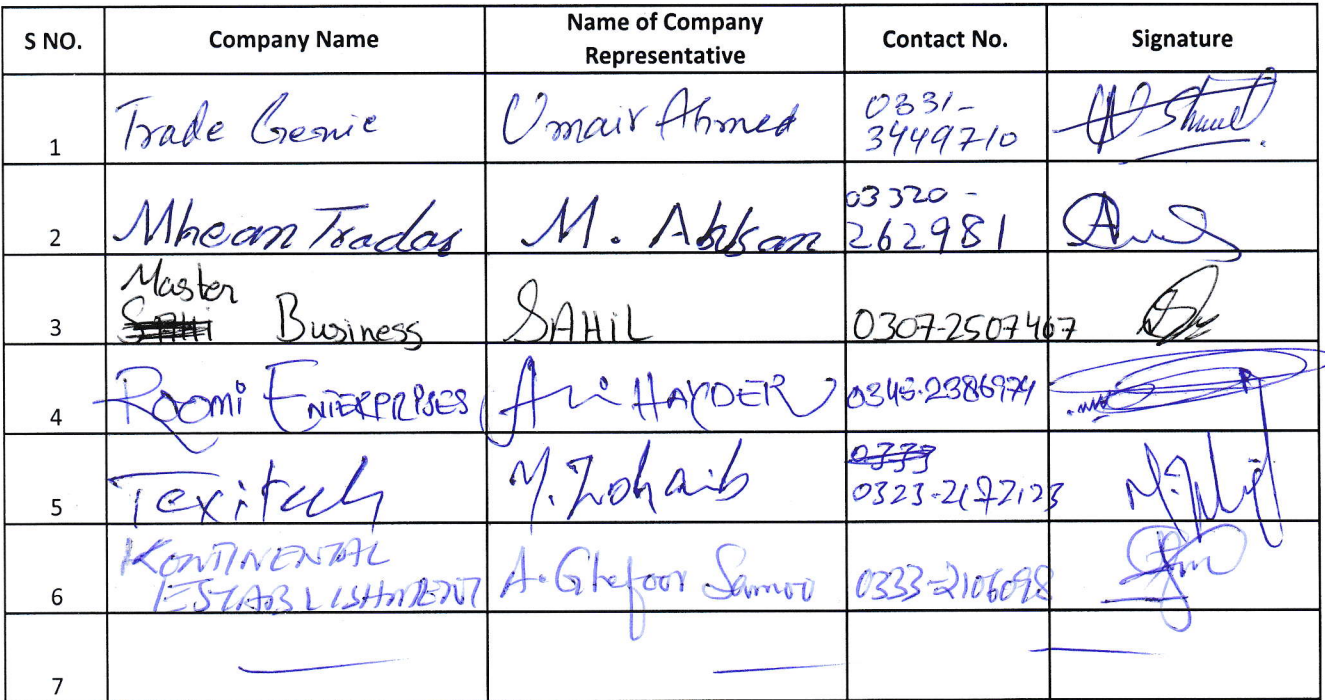 S NO. Company Name Name of Company Representative Contact No. Signature
1 Trade Genie Umair Ahmed 0331-3449710
2 Mhean Trades M. Ahsan 03320-262981
3 Master Business SAHIL 0307-2507467
4 Roomi ENTERPRISES Ali HAYDER 0345-2386974
5 Texitech M. Zohaib 0323-2172123
6 KONTINENTAL ESTABLISHMENT A. Ghafoor Samoo 0333-2106098
7